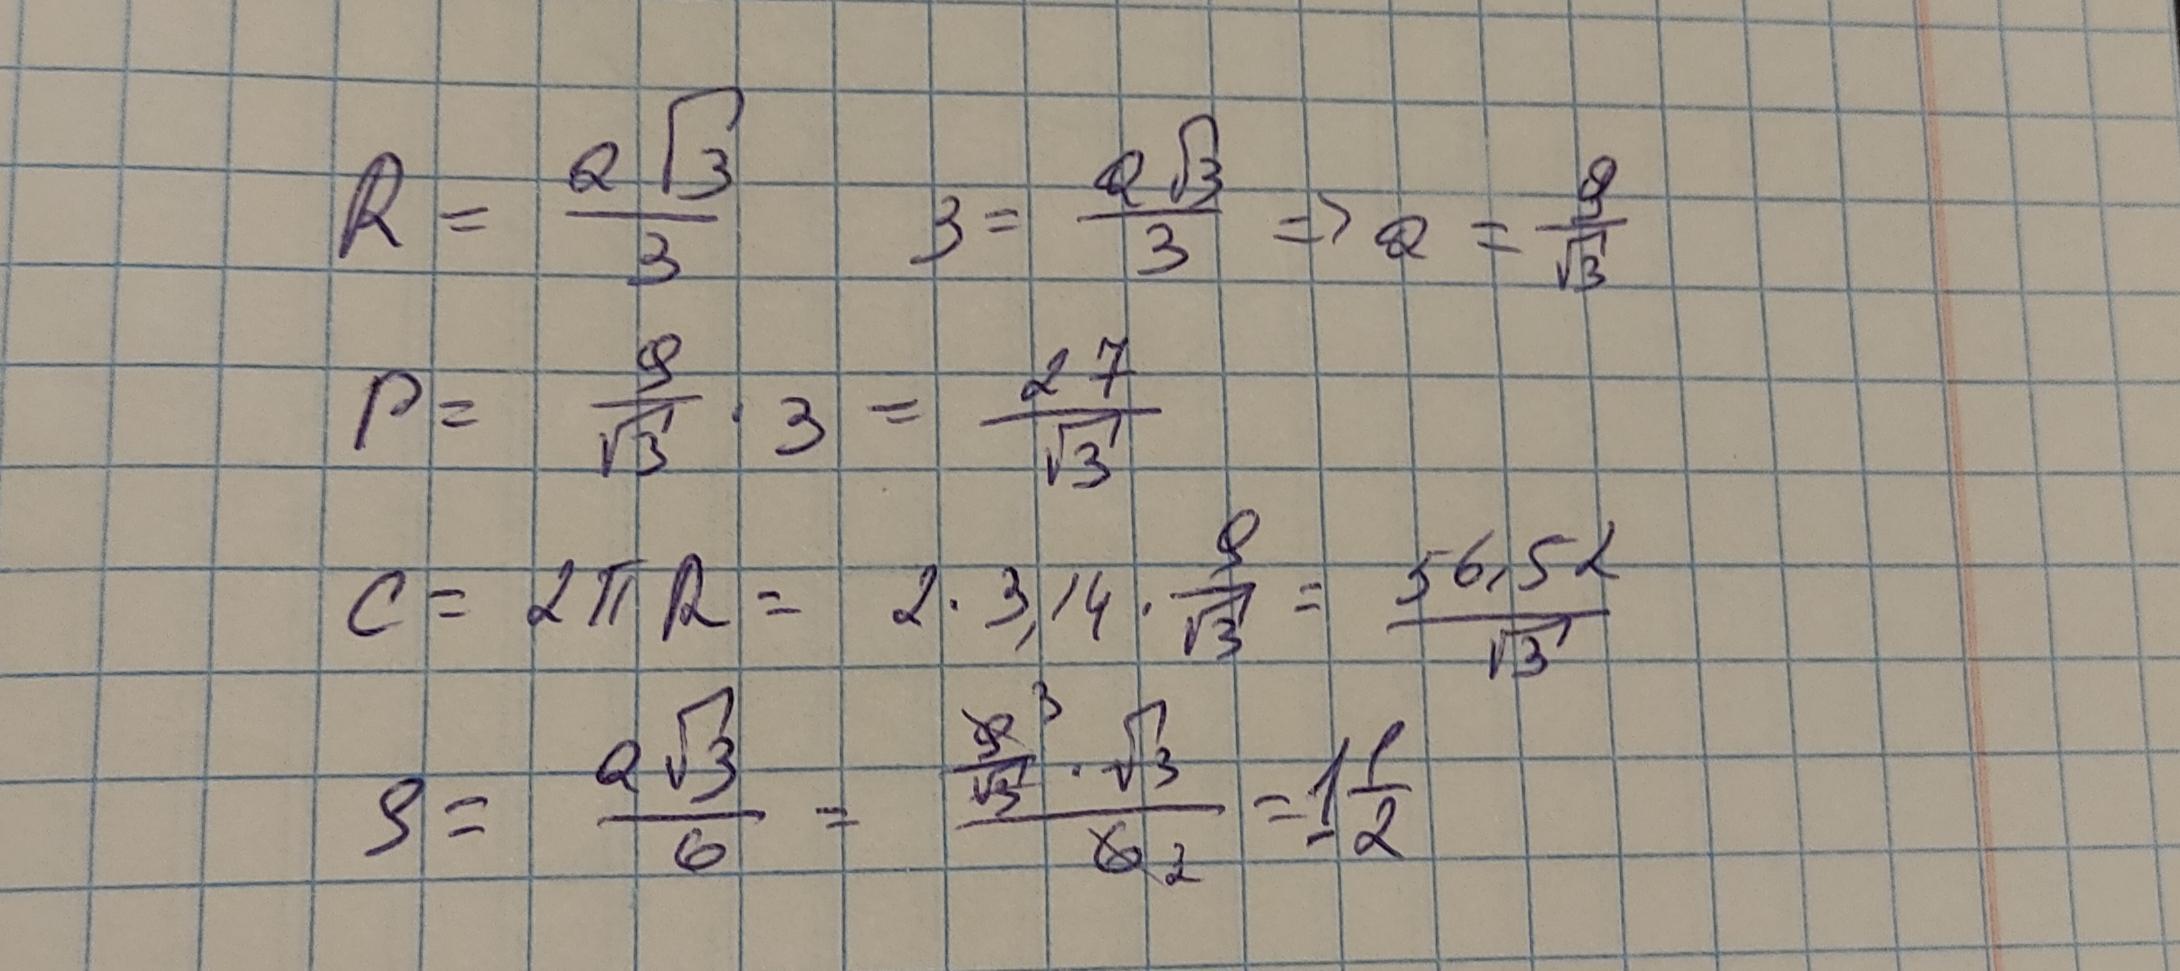 R = a√3/3 3 = a√3/3 => a = 9/√3
P = 9/√3 · 3 = 27/√3
C = 2πR = 2 · 3,14 · 9/√3 = 56,52/√3
S = a√3/6 = 9/√3 3 · √3/6 2 = 1 1/2